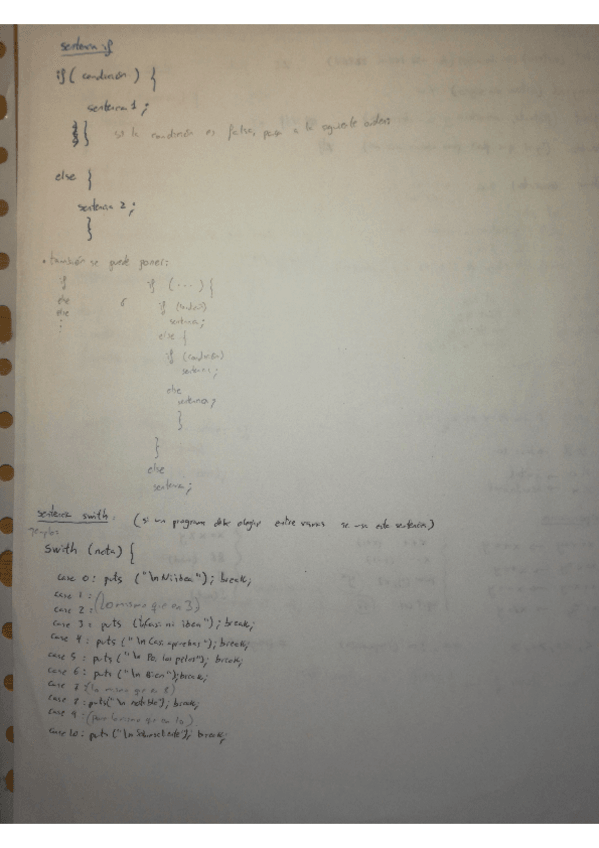 sentencia if
if ( condición ) {
sentencia 1 ;
} si la condición es falsa, pasa a la siguiente orden
else {
sentencia 2 ;
}
• también se puede poner:
if if (...) {
else ó if (condición)
else sentencia;
⋮ else {
if (condición)
sentencia;
else
sentencia;
}
}
else
sentencia;
sentencia swith : (si un programa debe elegir entre varias se usa esta sentencia)
Ejemplo:
swith (nota) {
case 0 : puts ("\n Ni idea"); break;
case 1 :
case 2 : (Lo mismo que en 3)
case 3 : puts ("\n Casi ni idea"); break;
case 4 : puts ("\n Casi apruebas"); break;
case 5 : puts ("\n Por los pelos"); break;
case 6 : puts ("\n Bien"); break;
case 7 : (lo mismo que en 8)
case 8 : puts("\n notable"); break;
case 9 : (pon lo mismo que en 10)
case 10 : puts ("\n Sobresaliente"); break;